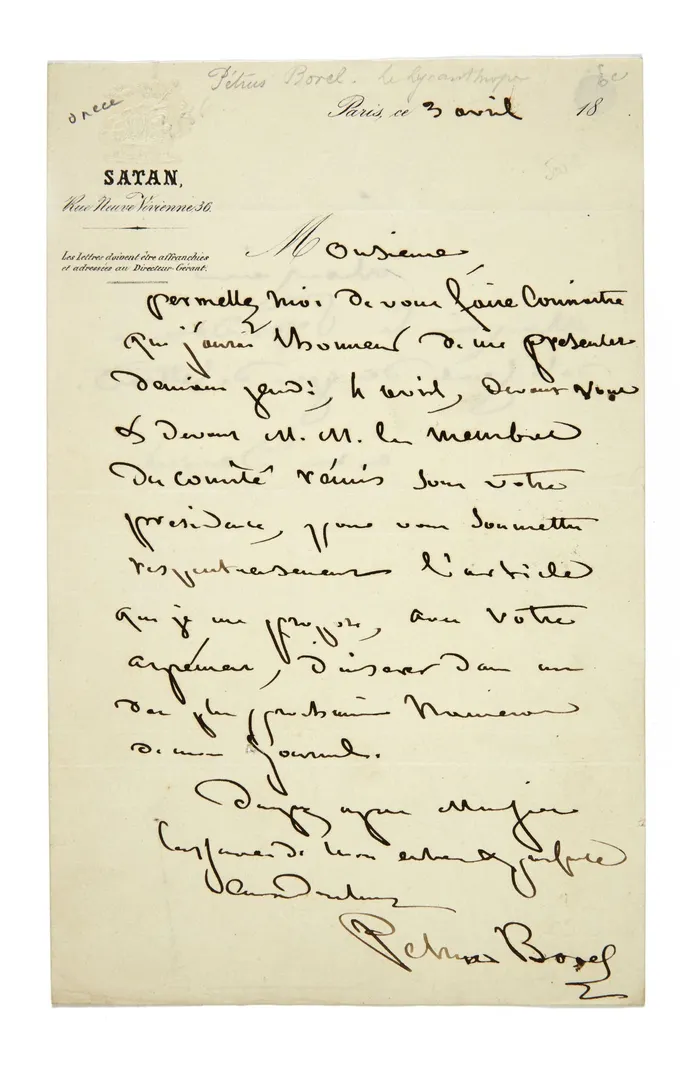 Pétrus Borel. le lycanthrope
Paris, ce 3 avril 18
SATAN,
Rue Neuve Vivienne, 36.
Les lettres doivent être affranchies
et adressées au Directeur-Gérant.
Monsieur
permettez moi de vous faire connaitre
que j'aurai l'honneur de me présenter
demain jeudi, 4 avril, devant vous
& devant M. M. les membres
du comité réunis sous votre
présidence, pour vous soumettre
respectueusement l'article
que je me propose, avec votre
agrément, d'insérer dans un
des plus prochains numéros
de mon journal.
Daignez agréer Monsieur
l'assurance de mon entier & parfait
Petrus Borel